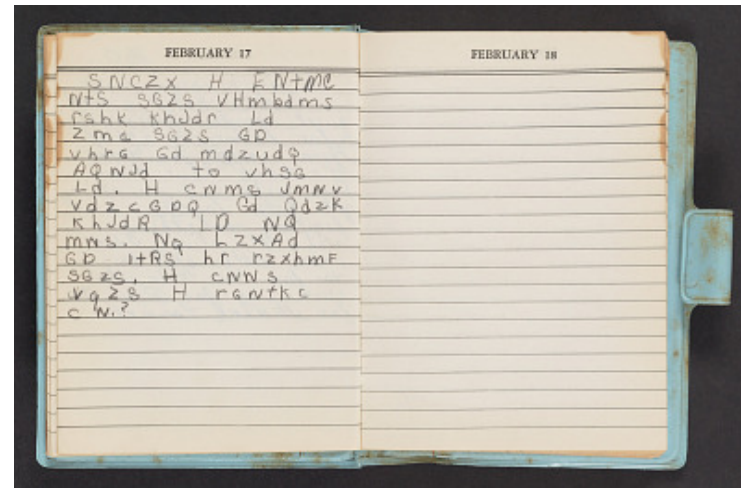 FEBRUARY 17
SNCZX H ENtmC
NtS SGZS VHmbdms
rshk khJdr Ld
Zmc SGZS GD
vhrG Gd mdzudq
AQNJd to vhsG
Ld. H cNms JmNv
VdzcGDQ Gd QdzK
KhJdR LD NQ
mNs. Nq LZXAd
GD ItRS hr rzxhmF
SGZS. H cNNS
vqZS H rGNtKc
cN.?
FEBRUARY 18